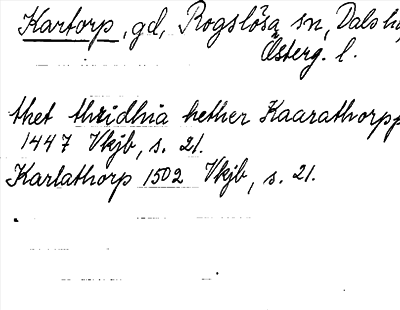 Kartorp, gd, Rogslösa sn, Dals h
Österg. l.
thet thridhia hether Kaarathorpp
1447 Vkjb, s. 21.
Karlathorp 1502 Vkjb, s. 21.